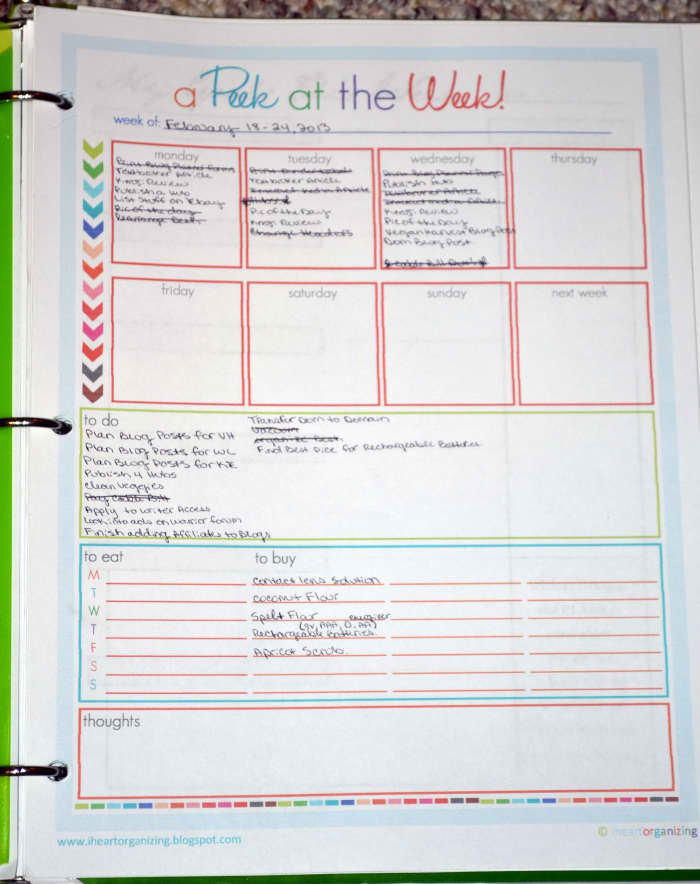 a Peek at the Week!
week of: February 18-24, 2013
monday
Textbroker Article
Kings Review
Publish a Wto
List Stuff on Ebay
Pic of the day
Rearrange Desk
tuesday
Textbroker Article
Pic of the Day
Kings Review
Change Headers
wednesday
Publish Wto
Textbroker Article
Kings Review
Pic of the Day
Vegan Harvest Blog Post
Dom Blog Post
thursday
friday
saturday
sunday
next week
to do
Plan Blog Posts for VH
Plan Blog Posts for WC
Plan Blog Posts for
Publish 4 Wtos
Clean Veggies
Pay Bill
Apply to Writer Access
Look into ads on Warrior forum
Finish adding Affiliates to Blogs
Transfer Dom to Domain
Vacuum
Organize Desk
Find Best Price for Rechargeable Batteries
to eat
to buy
M
Contact lens Solution
T
Coconut Flour
W
Spelt Flar energizer
T
(9v, AAA, D, AA)
Rechargeable Batteries
F
Apricot Scrub.
S
S
thoughts
www.iheartorganizing.blogspot.com
© iheartorganizing